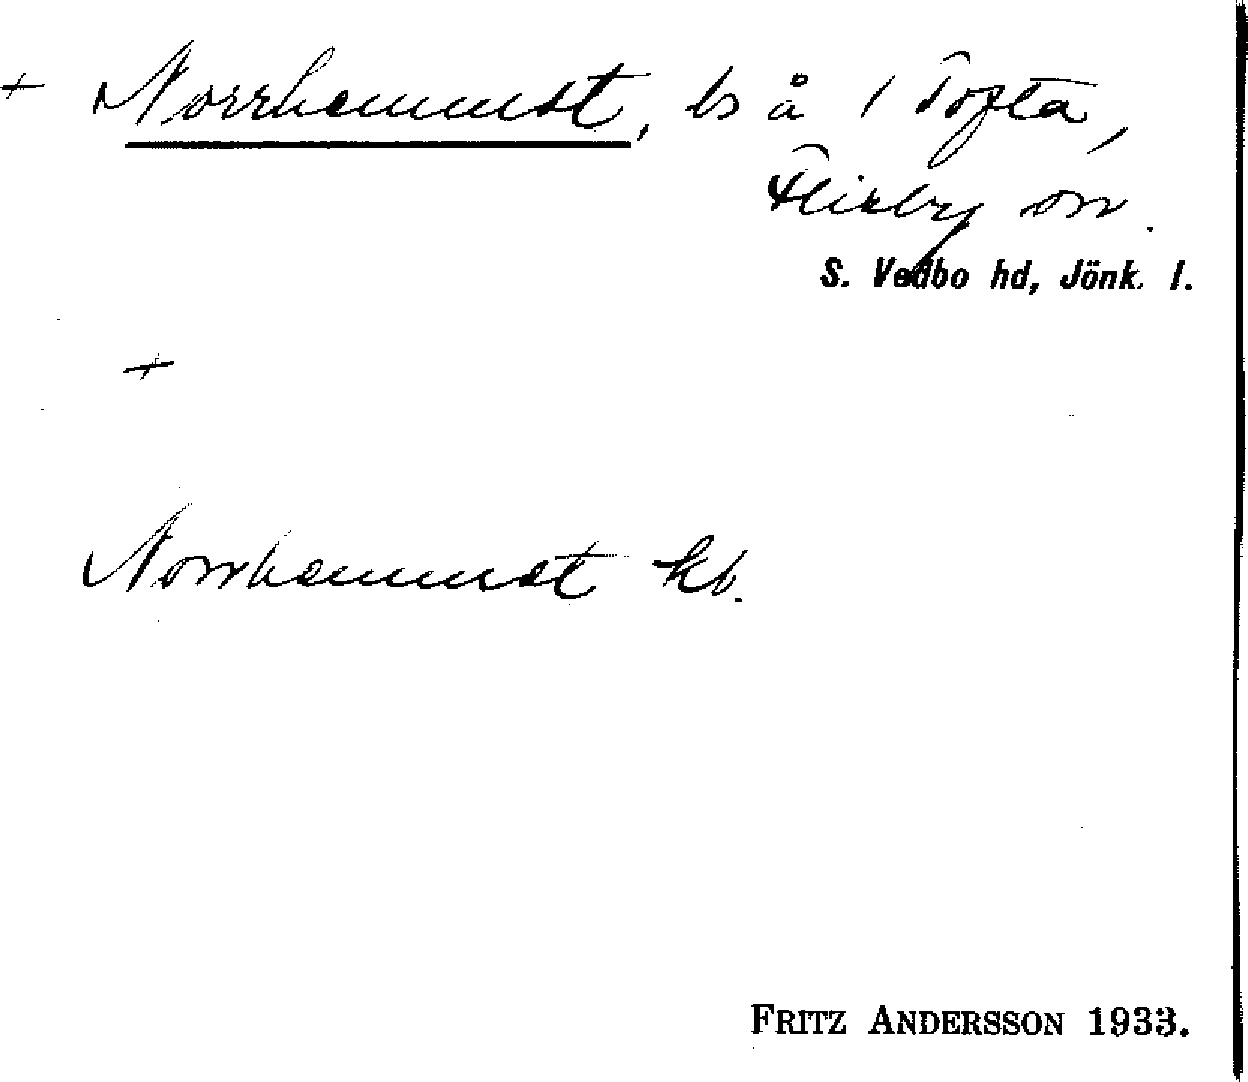 + Norrhemmet, ls å 1 Tofta,
Flisby sn.
S. Vedbo hd, Jönk. l.
+
Norrhemmet kb.
FRITZ ANDERSSON 1933.